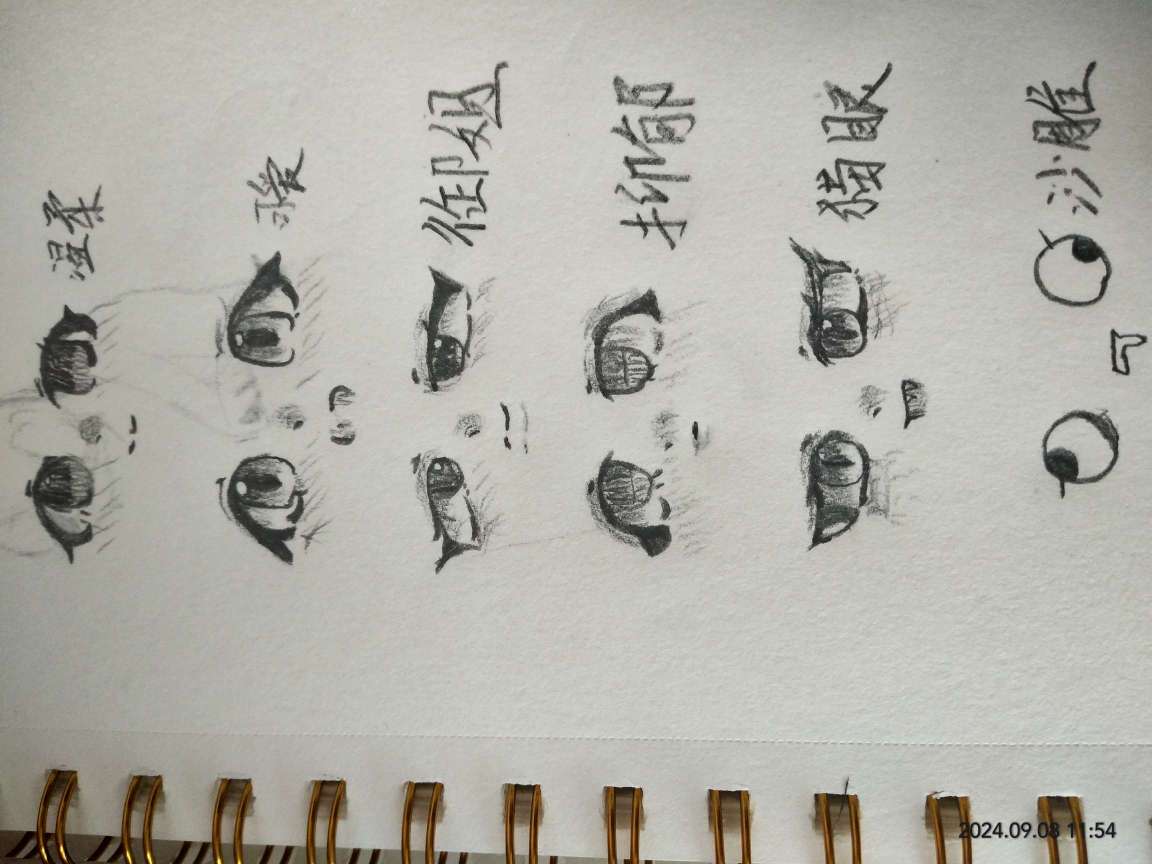 温柔
可爱
御姐
抑郁
猫眼
沙雕
2024.09.08 11:54